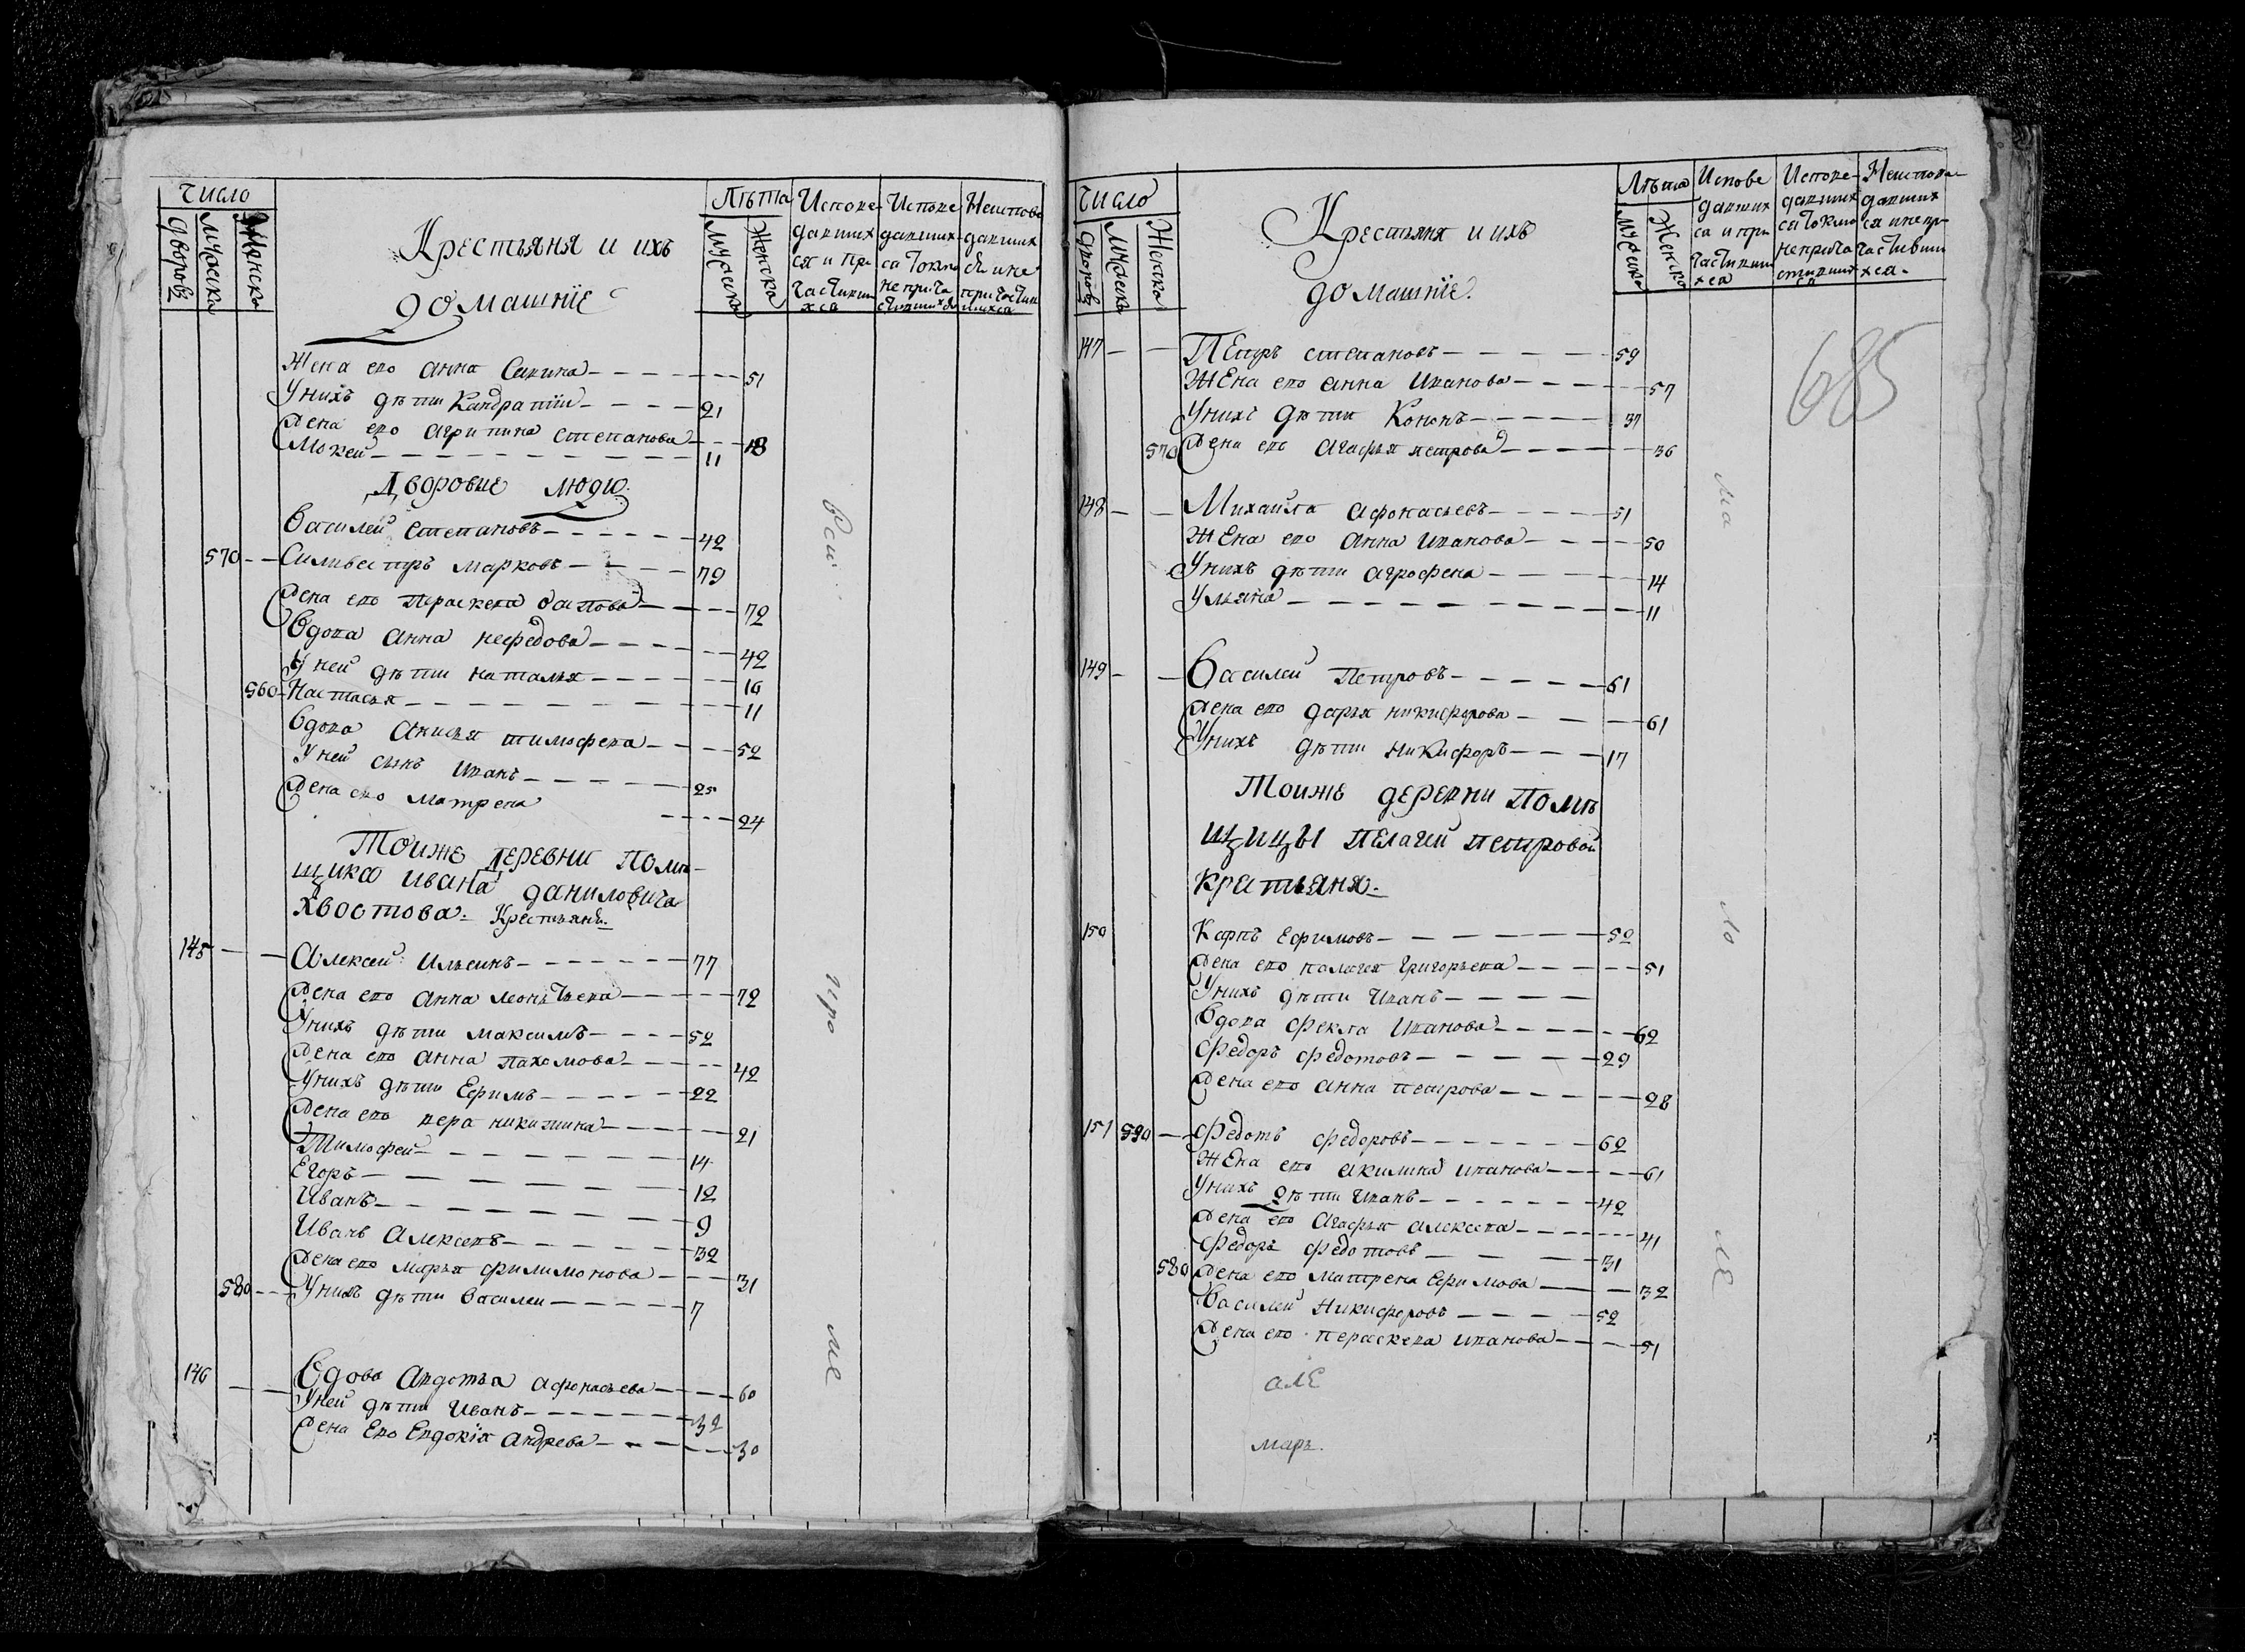 Число
Дворовъ
Мужска
Женска
Крестьяня и ихъ
домашнїе
Лѣта
Мужска
Женска
Испове
давших
ся и при
частивши
хся
Испове
давших
са токмо
не прича
стившихся
Неиспове
давших
ся и не
причастив
шихся
Жена ево анна Савина 51
У нихъ дѣти Кандратїи 21
Жена ево агрипина степанова 18
Мокей 11
Дворовые люди.
Василей Степановъ 42
570 Силивестръ марковъ 79
Жена ево Пераскева Осипова 72
Вдова анна нефедова 42
У ней дѣти наталья 16
560 Настасья 11
Вдова Анисья тимофева 52
У ней сынъ Иванъ 25
Жена ево матрена 24
Тоижѣ деревни помѣ
щика ивана даниловича
хвостова. Крестьянѣ.
145 Алексей Ильинъ 77
Жена ево анна леонтьева 72
У нихъ дѣти максимъ 52
Жена ево анна пахомова 42
У нихъ дѣти Ефимъ 22
Жена ево вера никитина 21
Тимофей 14
Егоръ 12
Иванъ 9
Иванъ Алексевъ 32
Жена ево марья филимонова 31
580 У нихъ дѣти василеи 7
146 Вдова Авдотья афонасьева 60
У ней дѣти Иванъ 32
Жена Ево Евдокїя андрева 30
Всѣ
про
ме
Число
Дворовъ
Мужска
Женска
Крестьяня и ихъ
домашнїе.
Лѣта
Мужска
Женска
Испове
давших
са и при
частивши
хся
Испове
давших
са токмо
непричa
стивших
ся
Неиспове
давших
ся и непри
частивши
хся.
685
147 Петръ степановъ 59
Жена ево анна Иванова 57
У нихъ дѣти Кононъ 37
570 Жена ево Агафья петрова 36
148 Михайла афонасьевъ 51
Жена ево анна иванова 50
У нихъ дѣти агрофена 14
Ульяна 11
149 Василеи Петровъ 61
Жена ево дарья никифорова 61
У нихъ дѣти никифоръ 17
Тоижѣ деревни Помѣ
щицы пелагеи петровой
кратьяня.
150 Карпъ Ефимовъ 52
Жена ево палагея григорьева 51
У нихъ дѣти Иванъ
Вдова фекла Иванова 62
Федоръ федотовъ 29
Жена ево анна петрова 28
151 590 Федотъ федоровъ 62
Жена ево акилина иванова 61
У нихъ дѣти Иванъ 42
Жена ево Агафья алексева 41
Федоръ федотовъ 31
580 Жена ево матрена Ефимова 32
Василей Никифоровъ 52
Жена ево пераскева иванова 51
ма
ло
ле
але
маръ.